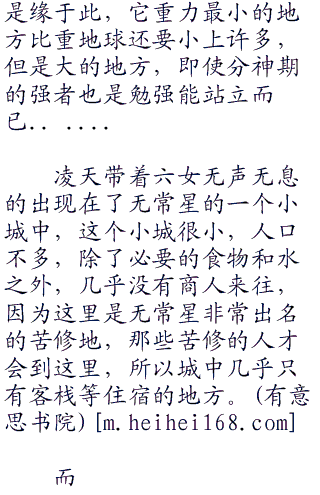 是缘于此，它重力最小的地
方比重地球还要小上许多，
但是大的地方，即使分神期
的强者也是勉强能站立而
已.. ....
凌天带着六女无声无息
的出现在了无常星的一个小
城中，这个小城很小，人口
不多，除了必要的食物和水
之外，几乎没有商人来往，
因为这里是无常星非常出名
的苦修地，那些苦修的人才
会到这里，所以城中几乎只
有客栈等住宿的地方。(有意
思书院)[m.heihei168.com]
而